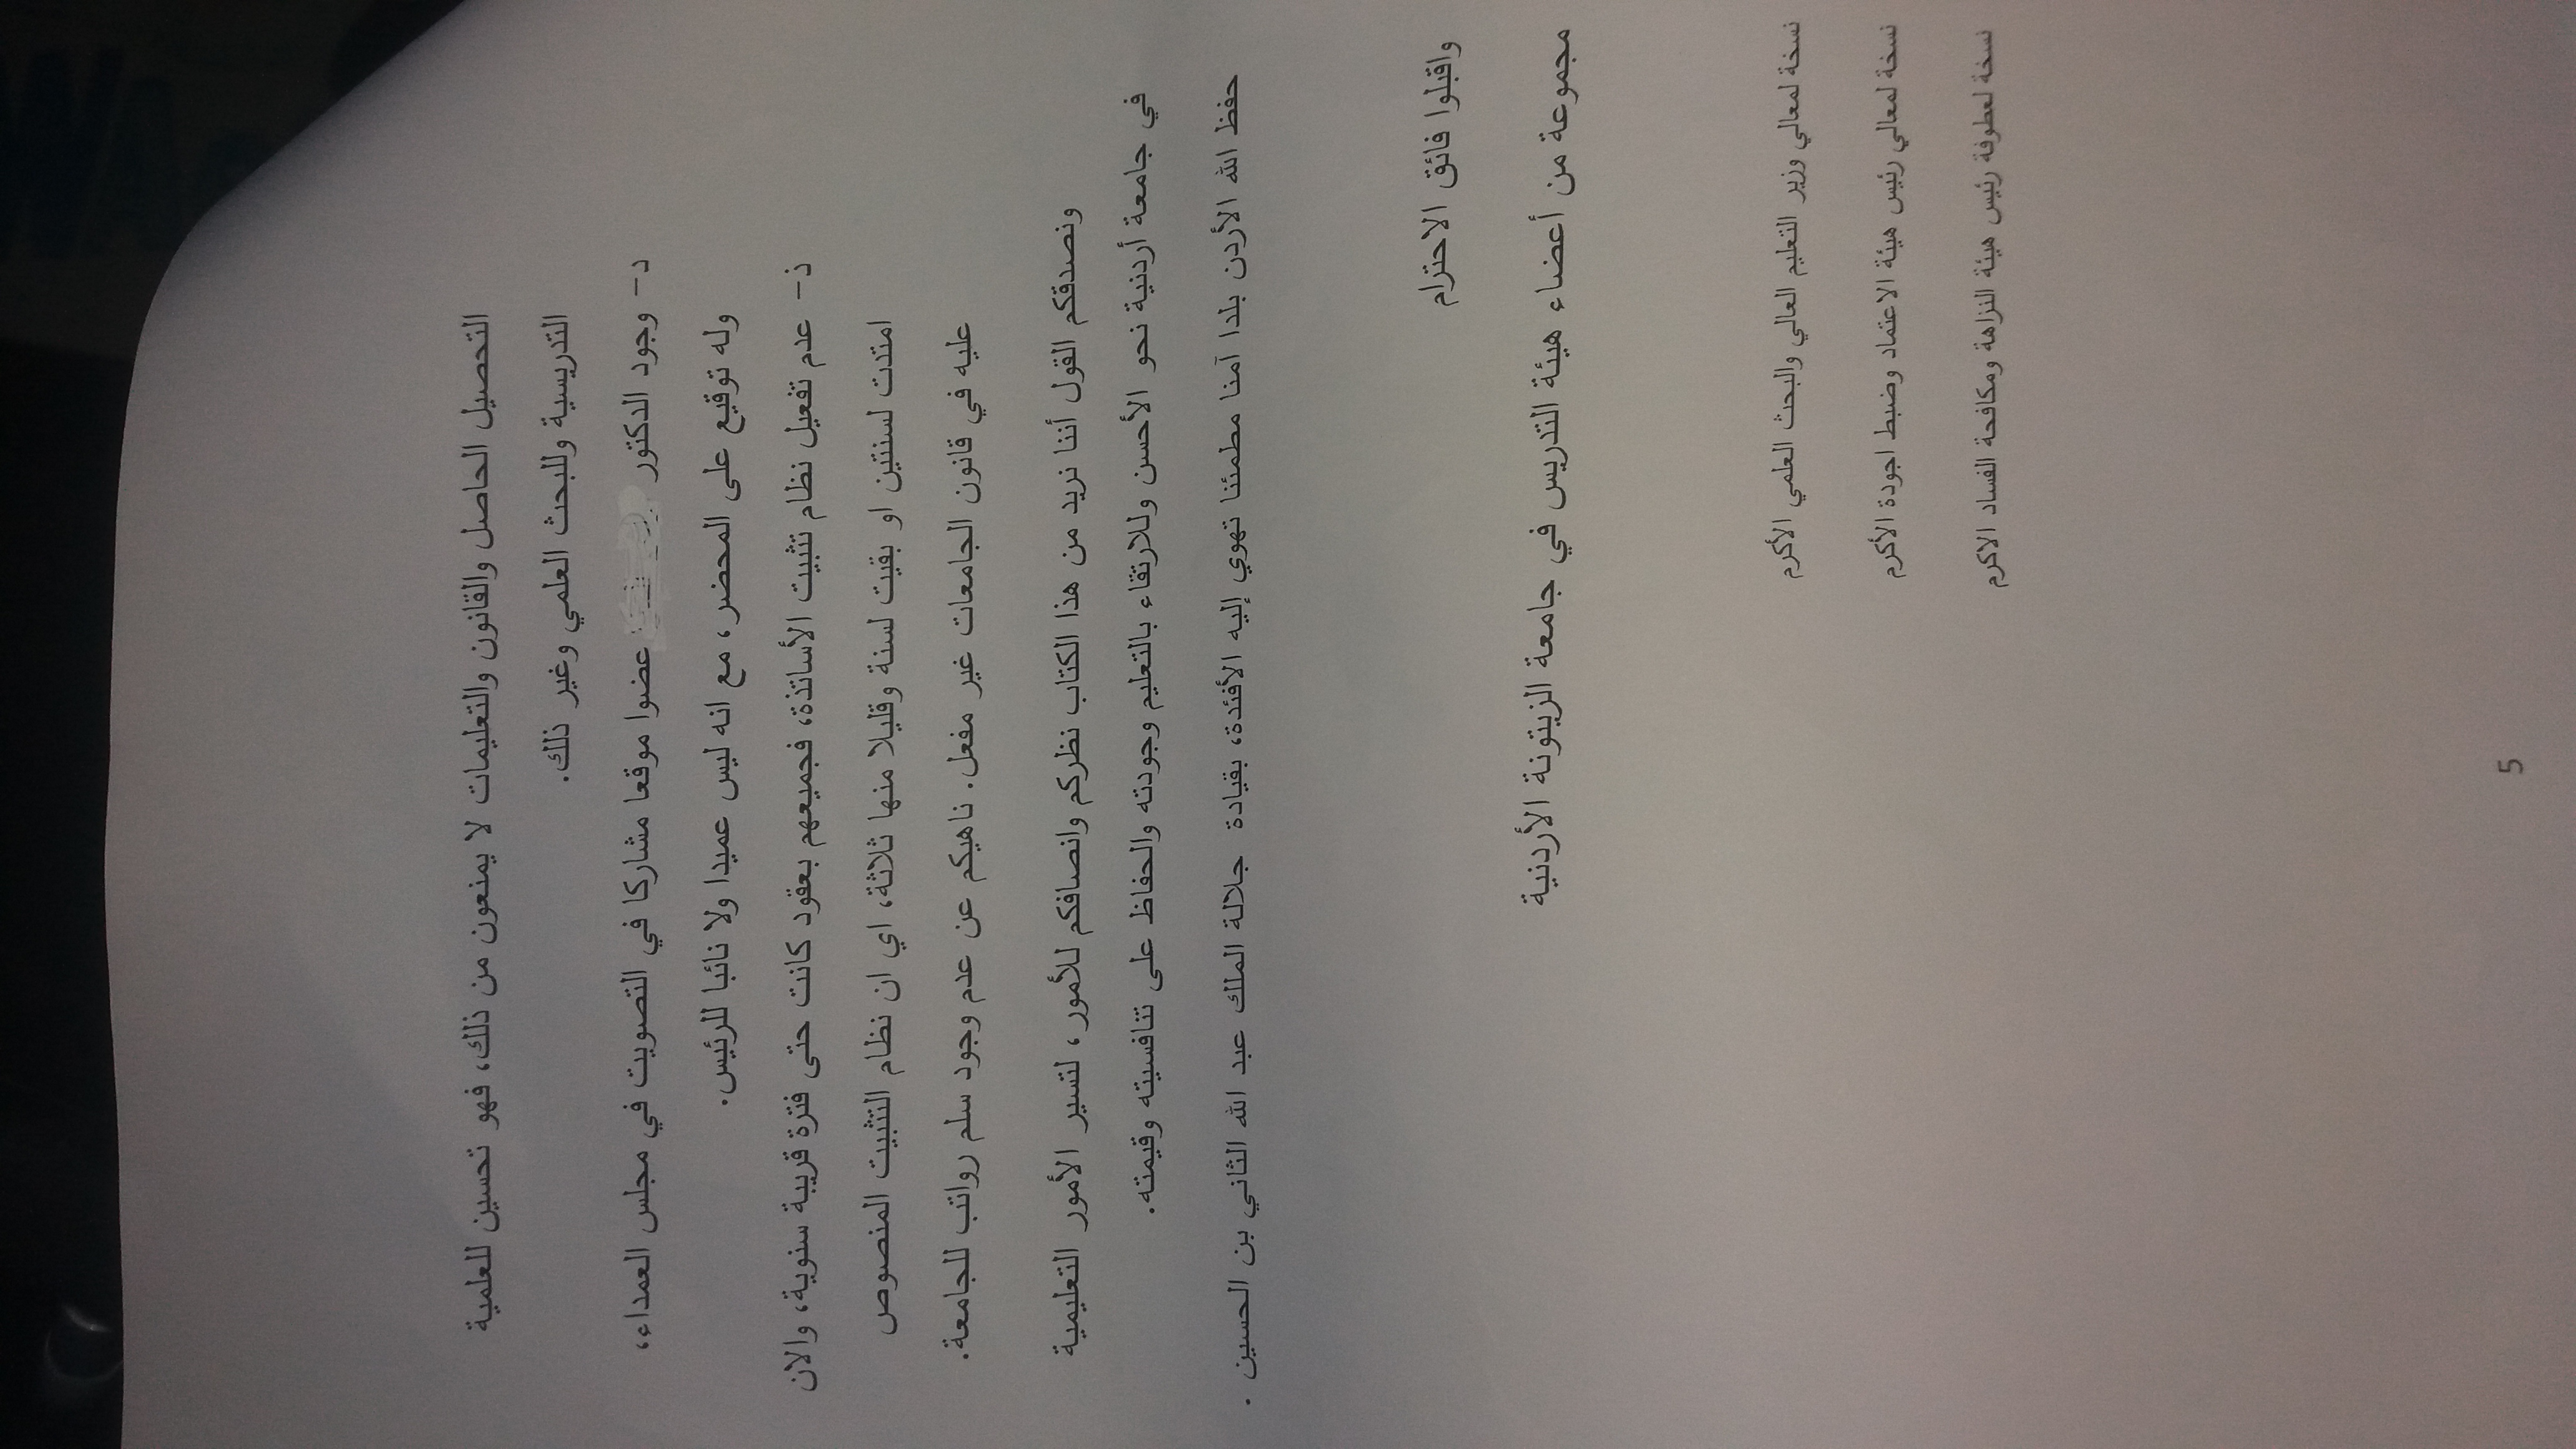 التحصيل الحاصل والقانون والتعليمات لا يمنعون من ذلك، فهو تحسين للعلمية
التدريسية وللبحث العلمي وغير ذلك.
د- وجود الدكتور عضوا موقعا مشاركا في التصويت في مجلس العمداء،
وله توقيع على المحضر، مع انه ليس عميدا ولا نائبا للرئيس.
ذ- عدم تفعيل نظام تثبيت الأساتذة، فجميعهم بعقود كانت حتى فترة قريبة سنوية، والان
امتدت لسنتين او بقيت لسنة وقليلا منها ثلاثة، اي ان نظام التثبيت المنصوص
عليه في قانون الجامعات غير مفعل. ناهيكم عن عدم وجود سلم رواتب للجامعة.
ونصدقكم القول أننا نريد من هذا الكتاب نظركم وانصافكم للأمور، لتسير الأمور التعليمية
في جامعة أردنية نحو الأحسن وللارتقاء بالتعليم وجودته والحفاظ على تنافسيته وقيمته.
حفظ الله الأردن بلدا آمنا مطمئنا تهوي إليه الأفئدة، بقيادة جلالة الملك عبد الله الثاني بن الحسين .
واقبلوا فائق الاحترام
مجموعة من أعضاء هيئة التدريس في جامعة الزيتونة الأردنية
نسخة لمعالي وزير التعليم العالي والبحث العلمي الأكرم
نسخة لمعالي رئيس هيئة الاعتماد وضبط اجودة الأكرم
نسخة لعطوفة رئيس هيئة النزاهة ومكافحة الفساد الاكرم
5